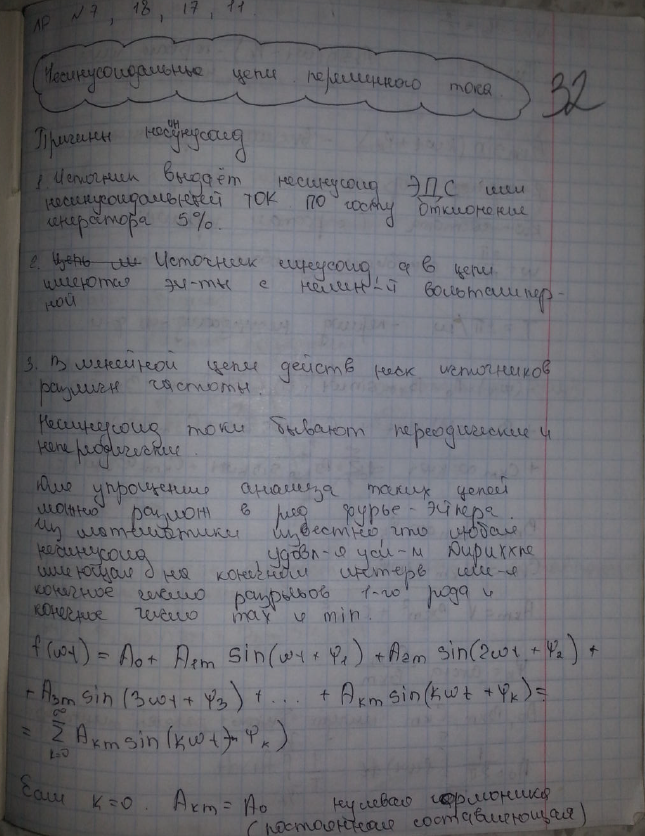 №7, 18, 17, 11
Несинусоидальные цепи переменного тока
32
Причины несинусоид
1. Источник выдаёт несинусоид ЭДС или
несинусоидальный ток по госту отклонение
генератора 5%.
2. Цепь Источник синусоид, а в цепи
имеются эл-ты с нелин-й вольтампер-
ной
3. В линейной цепи действ неск источников
различн частоты.
Несинусоид токи бывают переодические и
непериодические.
Для упрощение анализа таких цепей
можно разлож в ряд фурье-Эйлера.
Из математики известно что любая
несинусоид удовл-я усл-м Дирихле
имеющая на конечном интерв име-я
конечное число разрывов 1-го рода и
конечное число max и min.
f(ωt) = A₀ + A₁m sin(ωt + φ₁) + A₂m sin(2ωt + φ₂) +
+ A₃m sin(3ωt + φ₃) + ... + Aкm sin(кωt + φк) =
= ∑ к=0 ∞ Aкm sin(кωt + φк)
Если к=0. Aкm = A₀ нулевая гормоника
(постоянная составляющая)